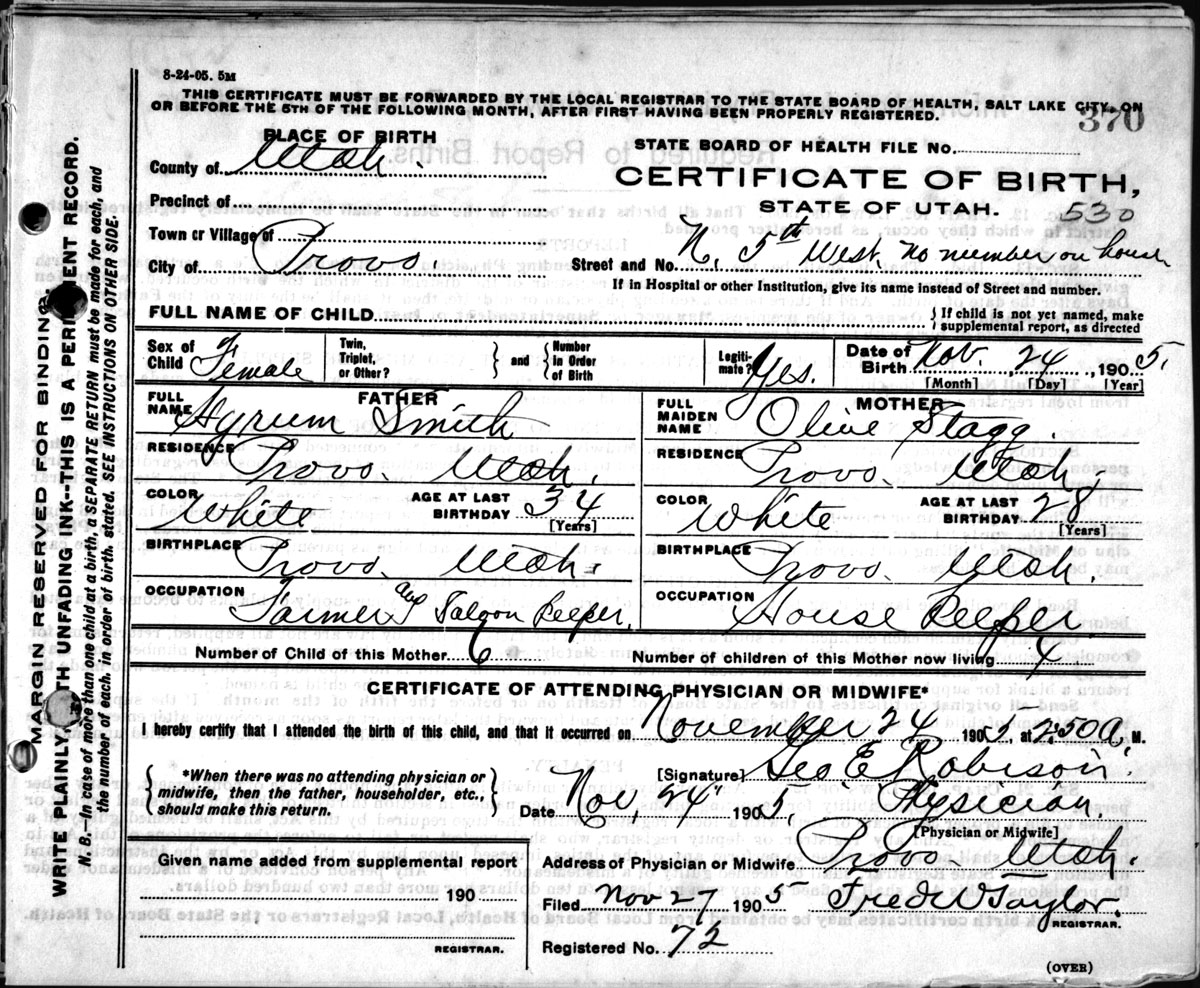 8-24-05. 5M
THIS CERTIFICATE MUST BE FORWARDED BY THE LOCAL REGISTRAR TO THE STATE BOARD OF HEALTH, SALT LAKE CITY, ON
OR BEFORE THE 5TH OF THE FOLLOWING MONTH, AFTER FIRST HAVING BEEN PROPERLY REGISTERED.
370
PLACE OF BIRTH
STATE BOARD OF HEALTH FILE No.
County of Utah.
CERTIFICATE OF BIRTH,
Precinct of
STATE OF UTAH.
530
Town or Village of
City of Provo.
Street and No. N. 5th West no number on house
If in Hospital or other Institution, give its name instead of Street and number.
FULL NAME OF CHILD
{ If child is not yet named, make supplemental report, as directed
Sex of Child Female
Twin, Triplet, or Other?
and
Number in Order of Birth
Legitimate? Yes.
Date of Birth Nov. 24, 1905.
[Month] [Day] [Year]
FATHER
MOTHER
FULL NAME Hyrum Smith
FULL MAIDEN NAME Olive Stagg.
RESIDENCE Provo. Utah.
RESIDENCE Provo. Utah.
COLOR White
AGE AT LAST BIRTHDAY 34
[Years]
COLOR White
AGE AT LAST BIRTHDAY 28
[Years]
BIRTHPLACE Provo. Utah.
BIRTHPLACE Provo. Utah.
OCCUPATION Farmer and Saloon Keeper.
OCCUPATION House Keeper
Number of Child of this Mother 6
Number of children of this Mother now living 4.
CERTIFICATE OF ATTENDING PHYSICIAN OR MIDWIFE*
I hereby certify that I attended the birth of this child, and that it occurred on November 24 190 , at 2:50 A. M.
{ *When there was no attending physician or midwife, then the father, householder, etc., should make this return. }
[Signature] Geo E Robison.
Date Nov. 24" 1905. Physician.
[Physician or Midwife]
Given name added from supplemental report
Address of Physician or Midwife. Provo Utah.
190
Filed Nov 27 1905 Fred W Taylor.
REGISTRAR.
REGISTRAR.
Registered No. 72
(OVER)
MARGIN RESERVED FOR BINDING.
WRITE PLAINLY, WITH UNFADING INK--THIS IS A PERMANENT RECORD.
N. B.--In case of more than one child at a birth, a SEPARATE RETURN must be made for each, and
the number of each, in order of birth, stated. SEE INSTRUCTIONS ON OTHER SIDE.